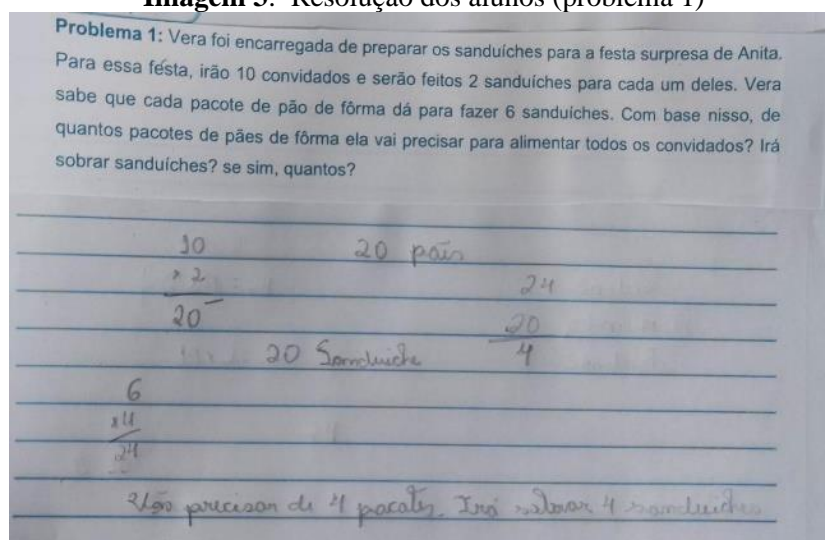 Imagem 3: Resolução dos alunos (problema 1)
Problema 1: Vera foi encarregada de preparar os sanduíches para a festa surpresa de Anita.
Para essa festa, irão 10 convidados e serão feitos 2 sanduíches para cada um deles. Vera
sabe que cada pacote de pão de fôrma dá para fazer 6 sanduíches. Com base nisso, de
quantos pacotes de pães de fôrma ela vai precisar para alimentar todos os convidados? Irá
sobrar sanduíches? se sim, quantos?
10 20
x 2 24
20 20
20 Sanduiche 4
6
x4
24
precisar de 4 pacotes. Irá sobrar 4 sanduiches